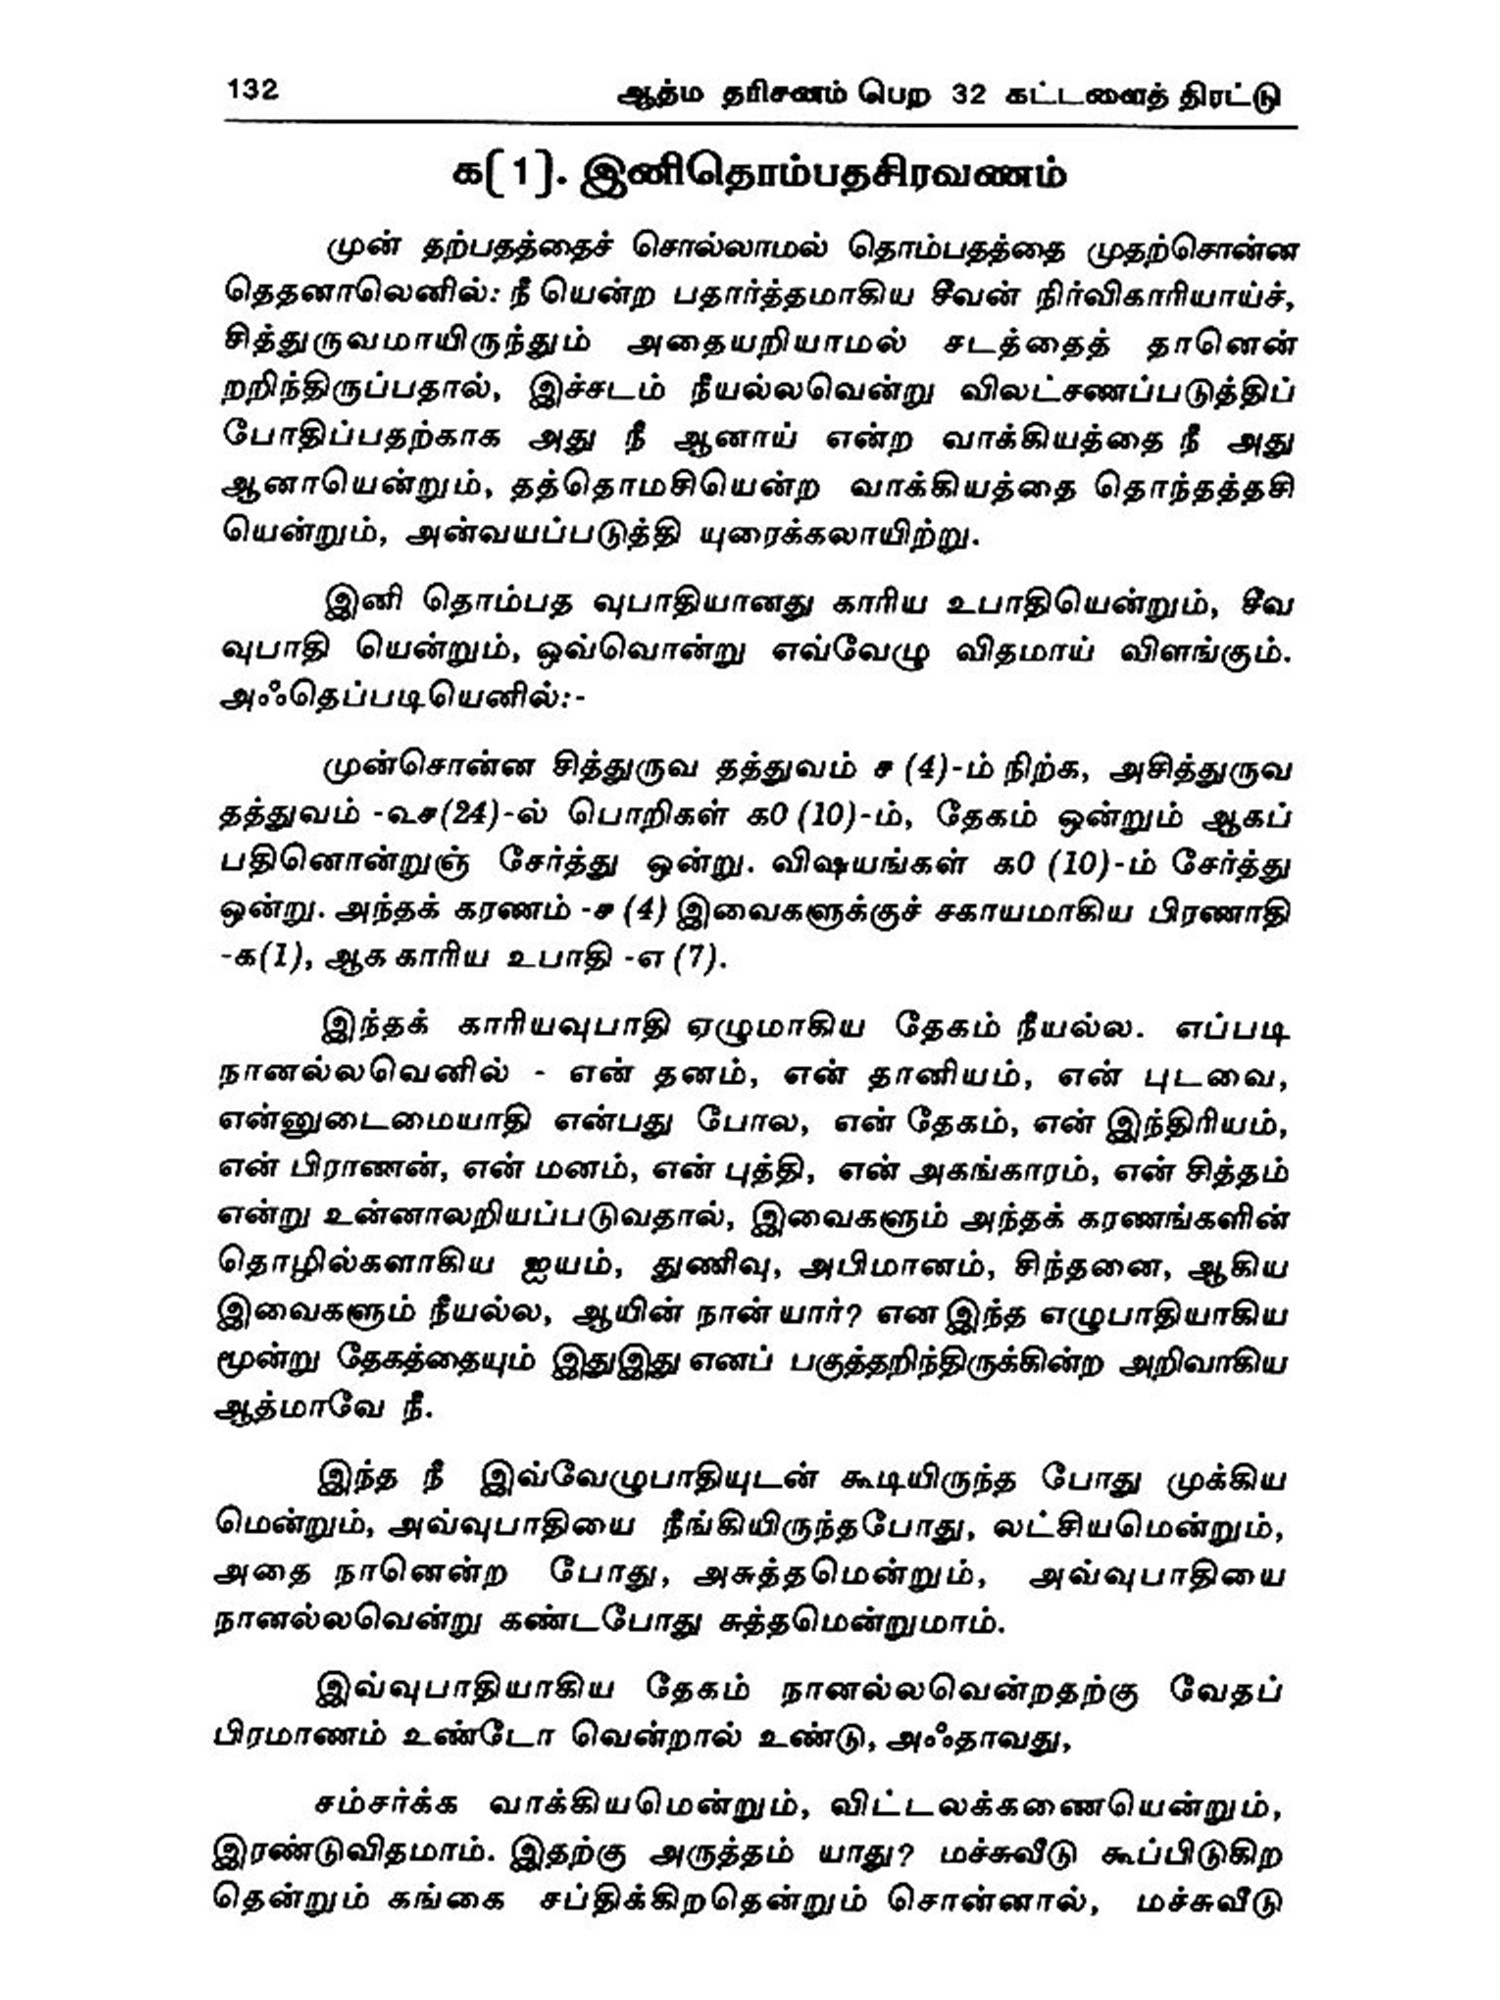 132 ஆத்ம தரிசனம் பெற 32 கட்டளைத் திரட்டு
க[1]. இனிதொம்பதசிரவணம்
முன் தற்பதத்தைச் சொல்லாமல் தொம்பதத்தை முதற்சொன்ன
தெதனாலெனில்: நீ யென்ற பதார்த்தமாகிய சீவன் நிர்விகாரியாய்ச்,
சித்துருவமாயிருந்தும் அதையறியாமல் சடத்தைத் தானென்
றறிந்திருப்பதால், இச்சடம் நீயல்லவென்று விலட்சணப்படுத்திப்
போதிப்பதற்காக அது நீ ஆனாய் என்ற வாக்கியத்தை நீ அது
ஆனாயென்றும், தத்தொமசியென்ற வாக்கியத்தை தொந்தத்தசி
யென்றும், அன்வயப்படுத்தி யுரைக்கலாயிற்று.
இனி தொம்பத வுபாதியானது காரிய உபாதியென்றும், சீவ
வுபாதி யென்றும், ஒவ்வொன்று எவ்வேழு விதமாய் விளங்கும்.
அஃதெப்படியெனில்:-
முன்சொன்ன சித்துருவ தத்துவம் ச (4)-ம் நிற்க, அசித்துருவ
தத்துவம் -உச(24)-ல் பொறிகள் க0 (10)-ம், தேகம் ஒன்றும் ஆகப்
பதினொன்றுஞ் சேர்த்து ஒன்று. விஷயங்கள் க0 (10)-ம் சேர்த்து
ஒன்று. அந்தக் கரணம் -ச (4) இவைகளுக்குச் சகாயமாகிய பிரணாதி
-க(1), ஆக காரிய உபாதி -எ (7).
இந்தக் காரியவுபாதி ஏழுமாகிய தேகம் நீயல்ல. எப்படி
நானல்லவெனில் - என் தனம், என் தானியம், என் புடவை,
என்னுடைமையாதி என்பது போல, என் தேகம், என் இந்திரியம்,
என் பிராணன், என் மனம், என் புத்தி, என் அகங்காரம், என் சித்தம்
என்று உன்னாலறியப்படுவதால், இவைகளும் அந்தக் கரணங்களின்
தொழில்களாகிய ஐயம், துணிவு, அபிமானம், சிந்தனை, ஆகிய
இவைகளும் நீயல்ல, ஆயின் நான் யார்? என இந்த எழுபாதியாகிய
மூன்று தேகத்தையும் இதுஇது எனப் பகுத்தறிந்திருக்கின்ற அறிவாகிய
ஆத்மாவே நீ.
இந்த நீ இவ்வேழுபாதியுடன் கூடியிருந்த போது முக்கிய
மென்றும், அவ்வுபாதியை நீங்கியிருந்தபோது, லட்சியமென்றும்,
அதை நானென்ற போது, அசுத்தமென்றும், அவ்வுபாதியை
நானல்லவென்று கண்டபோது சுத்தமென்றுமாம்.
இவ்வுபாதியாகிய தேகம் நானல்லவென்றதற்கு வேதப்
பிரமாணம் உண்டோ வென்றால் உண்டு, அஃதாவது,
சம்சர்க்க வாக்கியமென்றும், விட்டலக்கணையென்றும்,
இரண்டுவிதமாம். இதற்கு அருத்தம் யாது? மச்சுவீடு கூப்பிடுகிற
தென்றும் கங்கை சப்திக்கிறதென்றும் சொன்னால், மச்சுவீடு